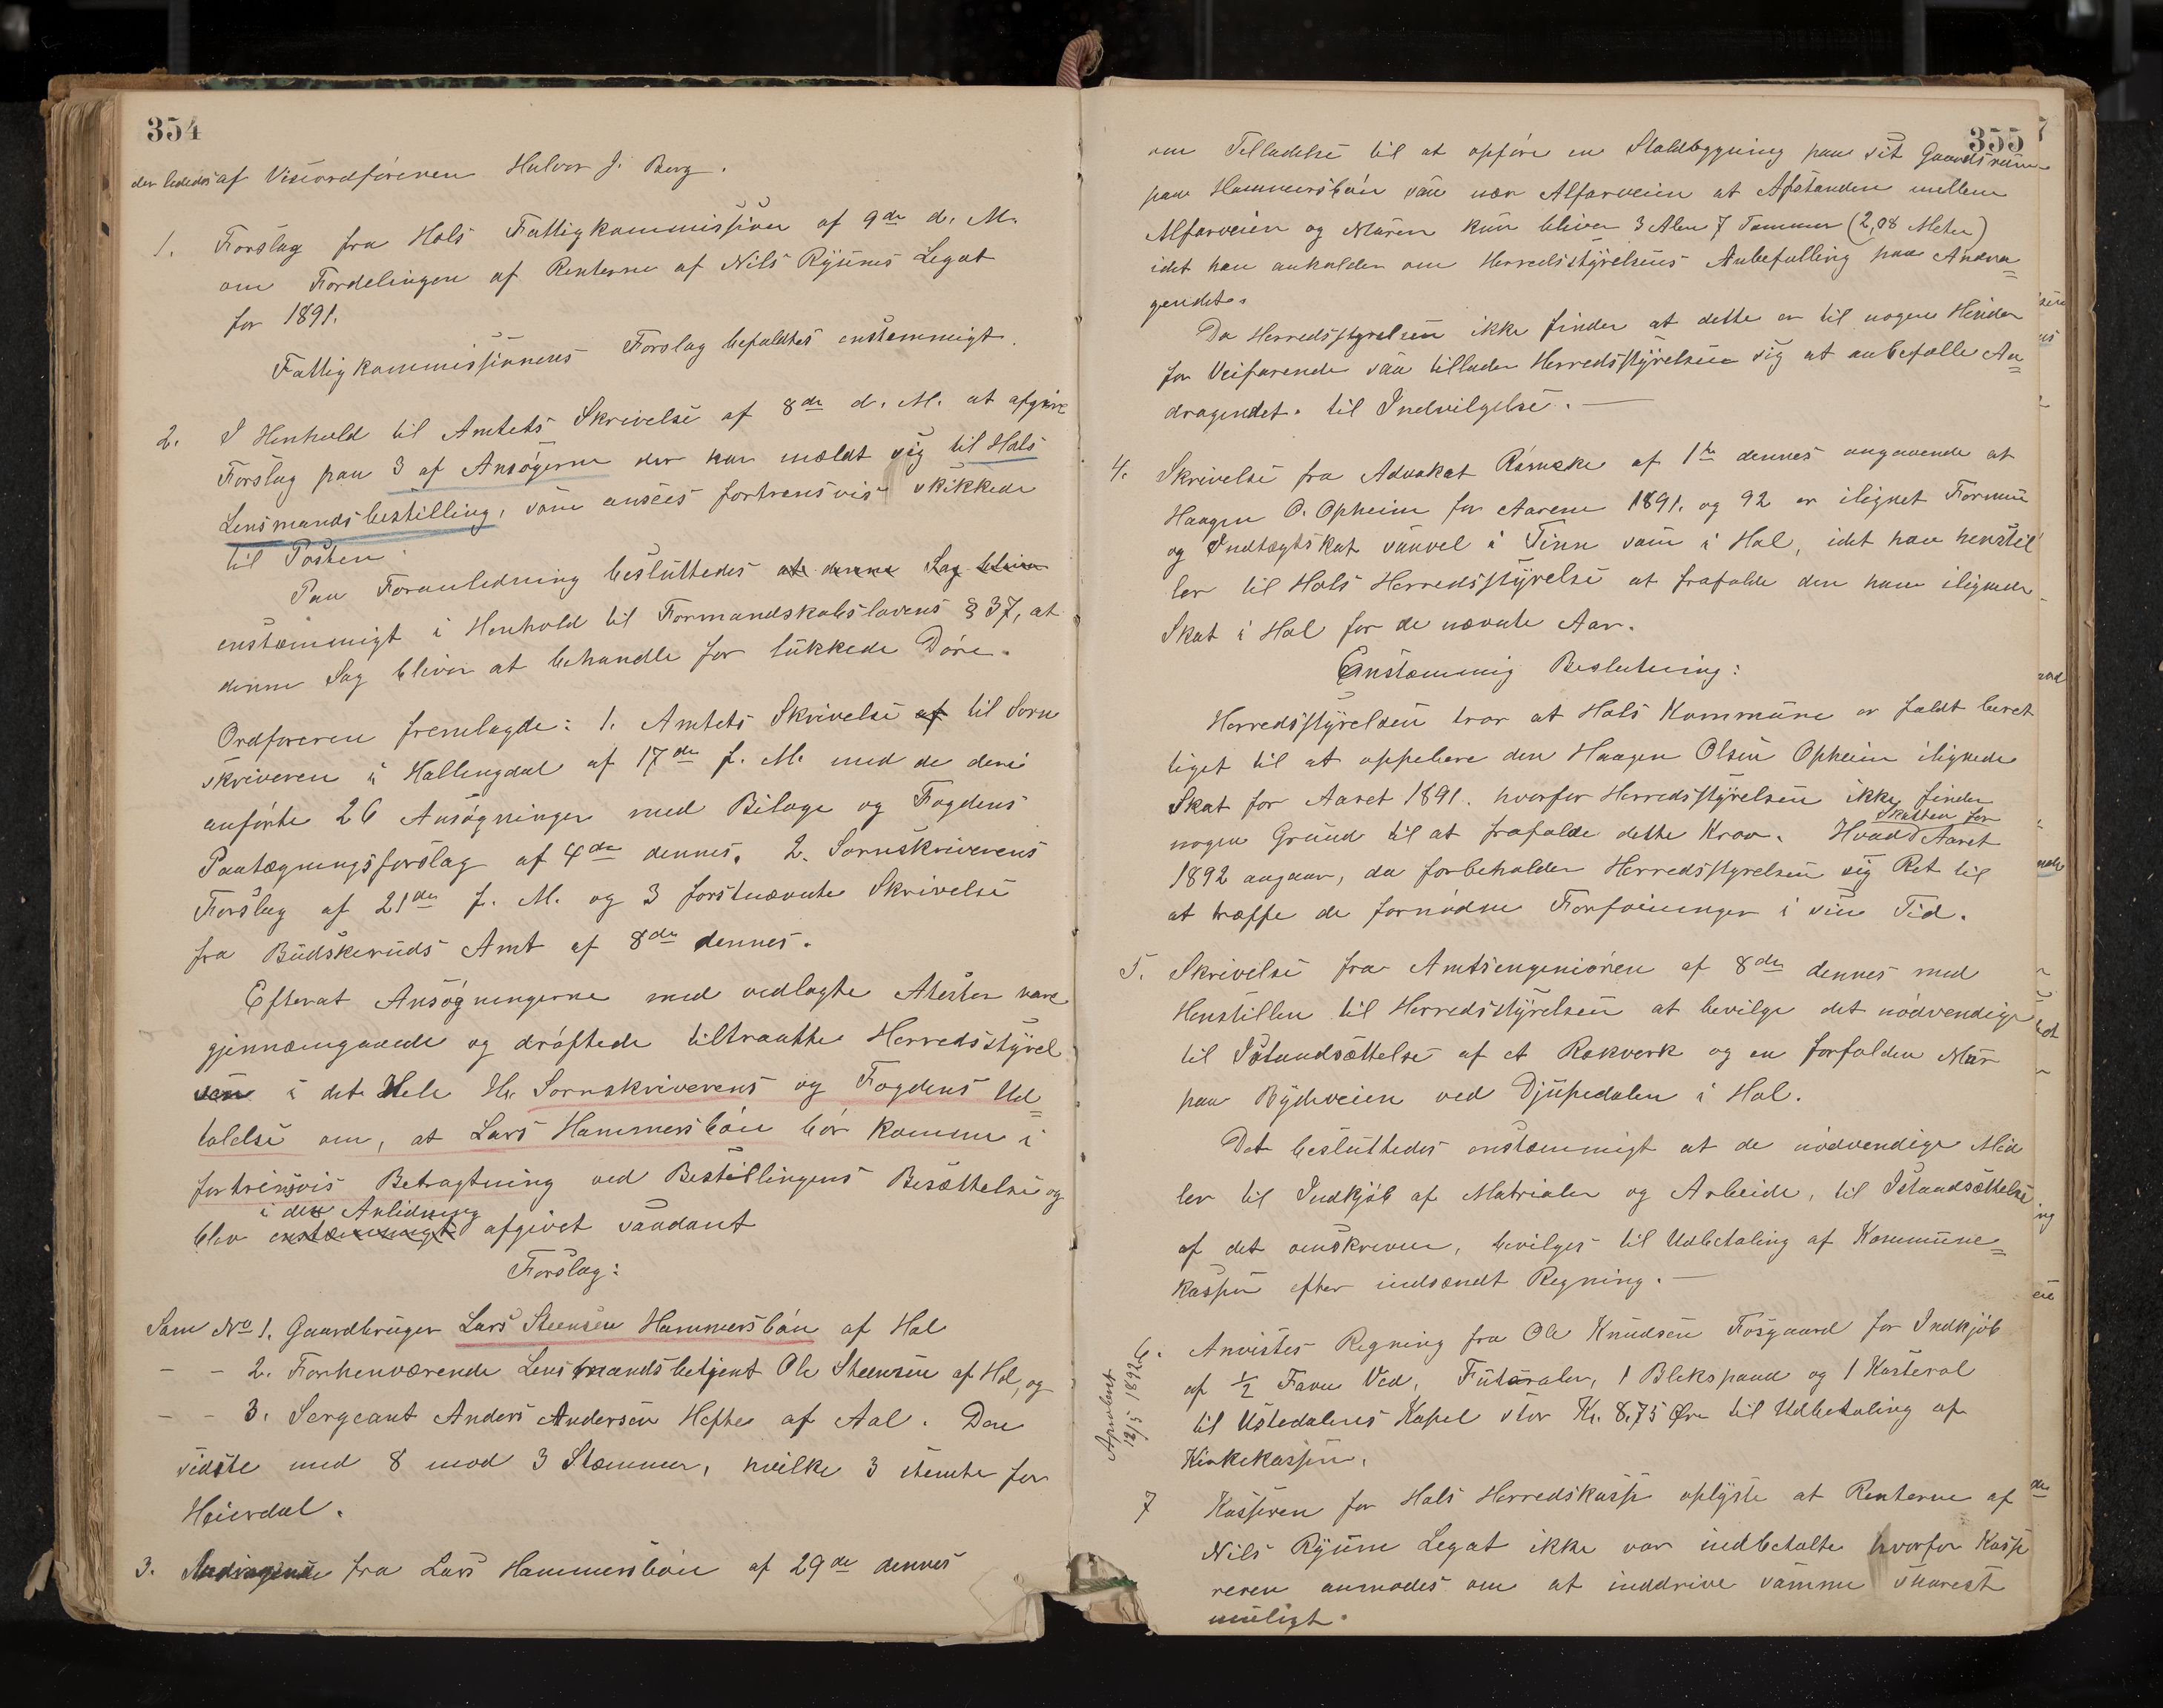 354
der lededes af Viseordføreren Halvor J. Berg.
1. Forslag fra Hols Fattigkommission af 9de d. M.
om Fordelingen af Renterne af Nils Ryunes Legat
for 1891.
Fattigkommissionens Forslag befaldtes enstemmigt.
2. I Henhold til Amtets Skrivelse af 8de d. M. at afgive
Forslag paa 3 af Ansøgerne der har mældt sig til Hols
Lensmandsbestilling, som ansees fortrensvis skikkede
til Posten.
Paa Foranledning besluttedes at denne Sag bliver
enstæmmigt i Henhold til Formandskabslovens § 37, at
denne Sag bliver at behandle for lukkede Døre.
Ordføreren fremlagde: 1. Amtets Skrivelse af til Sorn
skriveren i Hallingdal af 17de f. M. med de deri
anførte 26 Ansøgninger med Bilage og Fogdens
Paategningsforslag af 4de dennes. 2. Sornskriverens
Forslag af 21de f. M. og 3 forstnævnte Skrivelse
fra Budskeruds Amt af 8de dennes.
Efterat Ansøgningerne med vedlagte Atester vare
gjennemgaaede og drøftede tiltraatte Herredsstyrel
sen i det Hele Hr. Sornskriverens og Fogdens Ud=
talelse om, at Lars Hammersbøen bør komme i
fortrinsvis Betragtning ved Bestillingens Besættelse og
i den Anlidning
blev enstæmmigt afgivet saadant
Forslag:
Som No 1. Gaardbruger Lars Steensen Hammersbøen af Hol
- - 2. Forhenværende Lensmandsbetjent Ole Steensen af Hol, og
- - 3. Sergeant Anders Andersen Hefte af Aal. Den
sidste med 8 mod 3 Stemmer, hvilke 3 stemte for
Heierdal.
3. Andragende fra Lars Hammersbøen af 29de dennes
355
om Telladelse til at opføre en Staldbygning paa sit Gaardsrum
paa Hammersbøen saa nær Alfarveien at Afstanden mellem
Alfarveien og Muren kun bliver 3 Alen 7 Tommer (2,08 Meter)
idet han ankalder om Herredsstyrelsens Anbefalling paa Andra=
gendet.
Da Herredsstyrelsen ikke finder at dette er til nogen Hinder
for Veifarende saa tillader Herredsstyrelsen sig at anbefalle An=
dragendet til Indvilgelse.
4. Skrivelse fra Advokat Rømcke af 1te dennes angaaende at
Haagen O. Opheim for Aarene 1891. og 92 er ilignet Formue
og Indtægtskat saavel i Tinn som i Hol, idet han henstil
ler til Hols Herredsstyrelse at frafalde den ham ilignede
Skat i Hol for de nævnte Aar.
Enstæmmig Beslutning:
Herredsstyrelsen tror at Hols Kommune er fuldt beret
tiget til at oppebere den Haagen Olsen Opheim ilignede
Skat for Aaret 1891. hvorfor Herredsstyrelsen ikke finder
nogen Grund til at frafalde dette Krav. Hvad Skatten for Aaret
1892 angaar, da forbeholder Herredsstyrelsen sig Ret til
at træffe de fornødne Forføininger i sin Tid.
5. Skrivelse fra Amtsingeniøren af 8de dennes med
Henstillen til Herredsstyrelsen at bevilge det nødvendige
til Istandsættelse af et Rækverk og en forfalden Mur
paa Bygdeveien ved Djupedalen i Hol.
Det besluttedes enstæmmigt at de nødvendige Mid
ler til Indkjøb af Matrialer og Arbeide, til Istandsættelse
af det omskrevne, bevilges til Udbetaling af Kommune=
kassen efter indsændt Regning.
6. Anvistes Regning fra Ole Knudsen Fosgaard for Indkjøb
af 1/2 Favn Ved, Futeraler, 1 Blekspand og 1 Kasterol
til Ustedalens Kapel stor Kr. 8,75 Øre til Udbetaling af
Kirkekassen.
Aprobert
12/5 1892
7 Kasseren for Hols Herredskasse oplyste at Renterne af
Nils Ryune Legat ikke var indbetalte hvorfor Kasse
reren anmodes om at inddrive samme snarest
muligt.